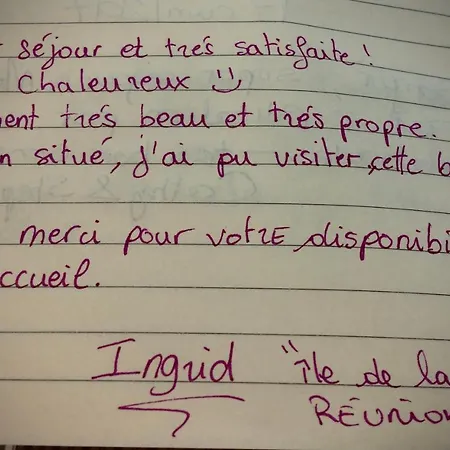 séjour et trés satisfaite !
chaleureux
ent trés beau et trés propre.
n situé, j'ai pu visiter cette b
merci pour votre disponibi
ccueil.
Ingrid "île de la
RÉUNION